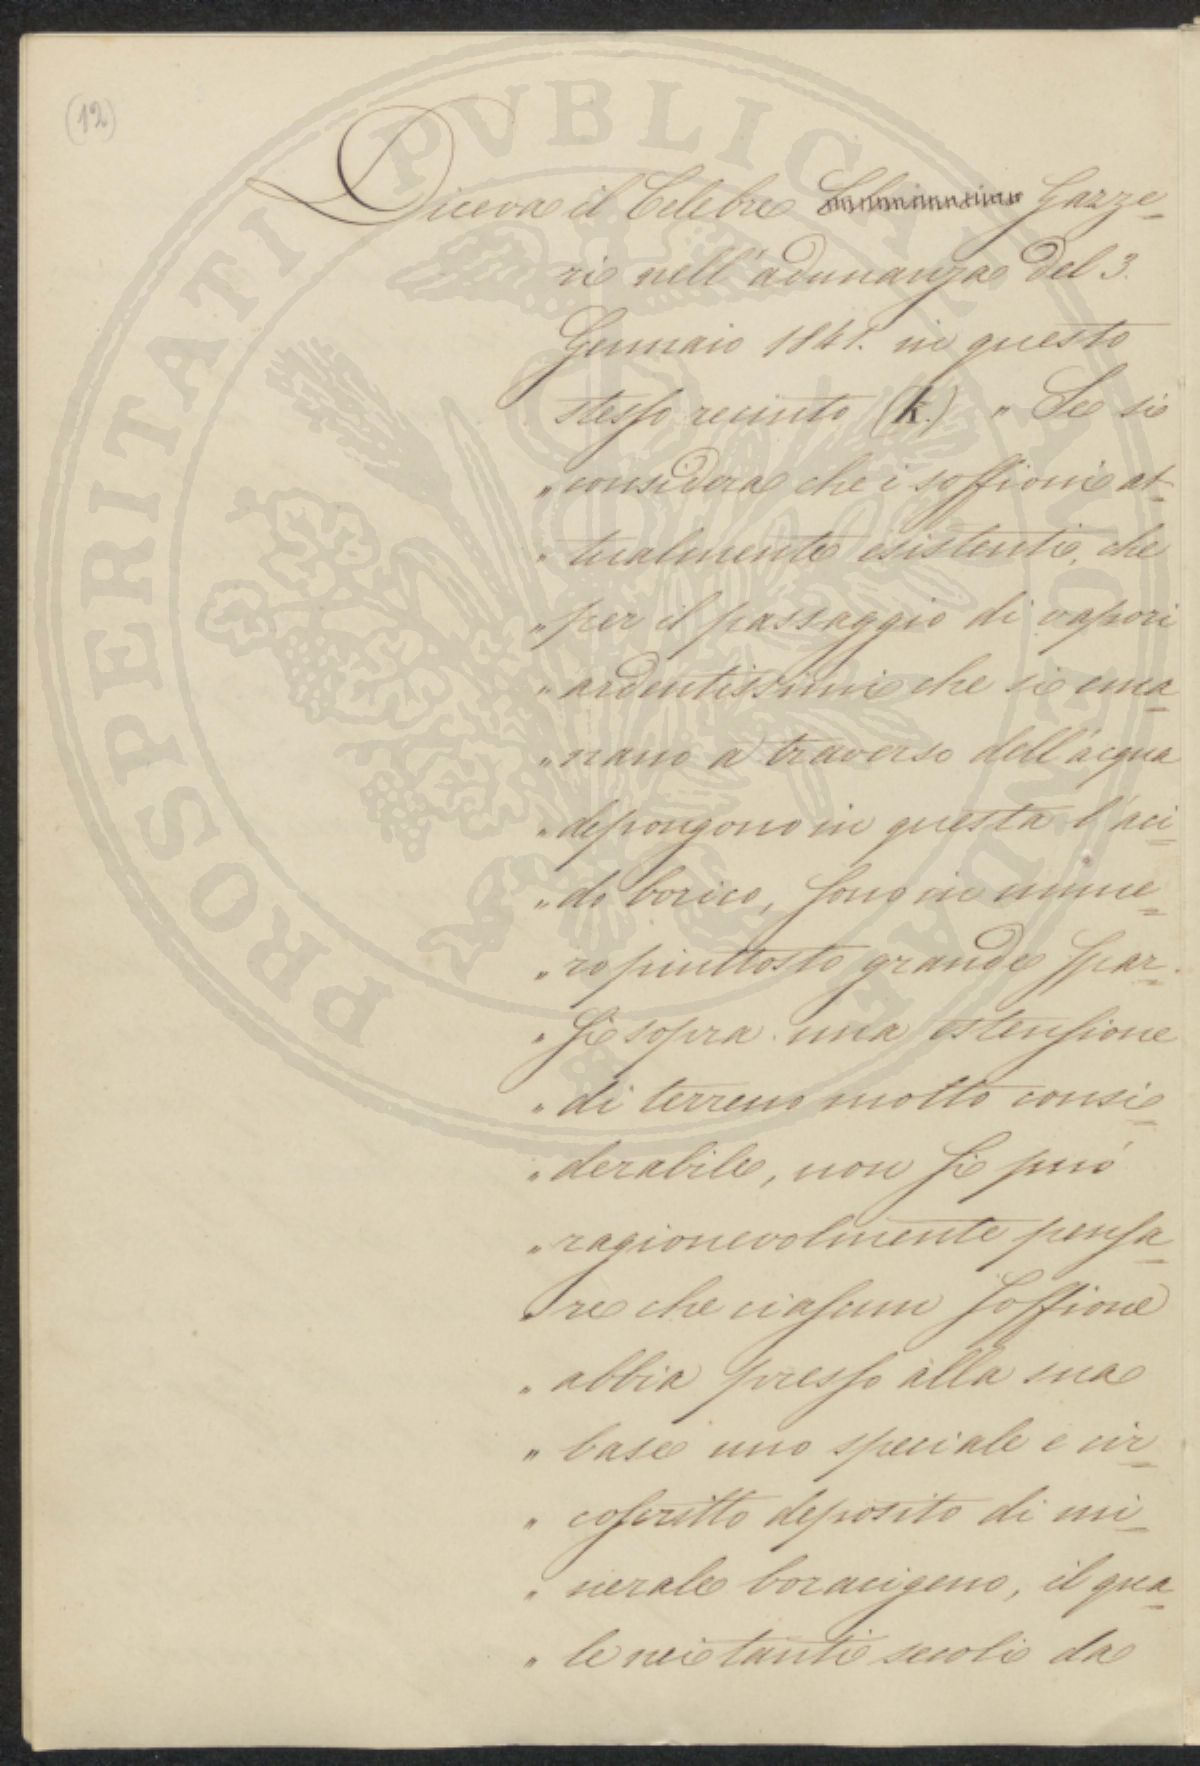 (12)
Diceva il Celebre Gazze=
ri nell'adunanza del 3.
Gennaio 1841. in questo
stesso recinto (k.) „ Se si
„ considera che i soffioni at=
„ tualmente esistenti, che
„ per il passaggio di vapori
„ ardentissimi che si ema=
„ nano a traverso dell'acqua
„ depongono in questa l'aci=
„ do borico, sono in nume=
„ ro piuttosto grande spar=
„ si sopra una estensione
„ di terreno molto consi=
„ derabile, non si può
„ ragionevolmente pensa=
„ re che ciascun soffione
„ abbia presso alla sua
„ base uno speciale e cir=
„ coscritto deposito di mi=
„ nerale boracigeno, il qua=
„ le nei tanti secoli da
PROSPERITATI PVBLICAE AVGENDAE